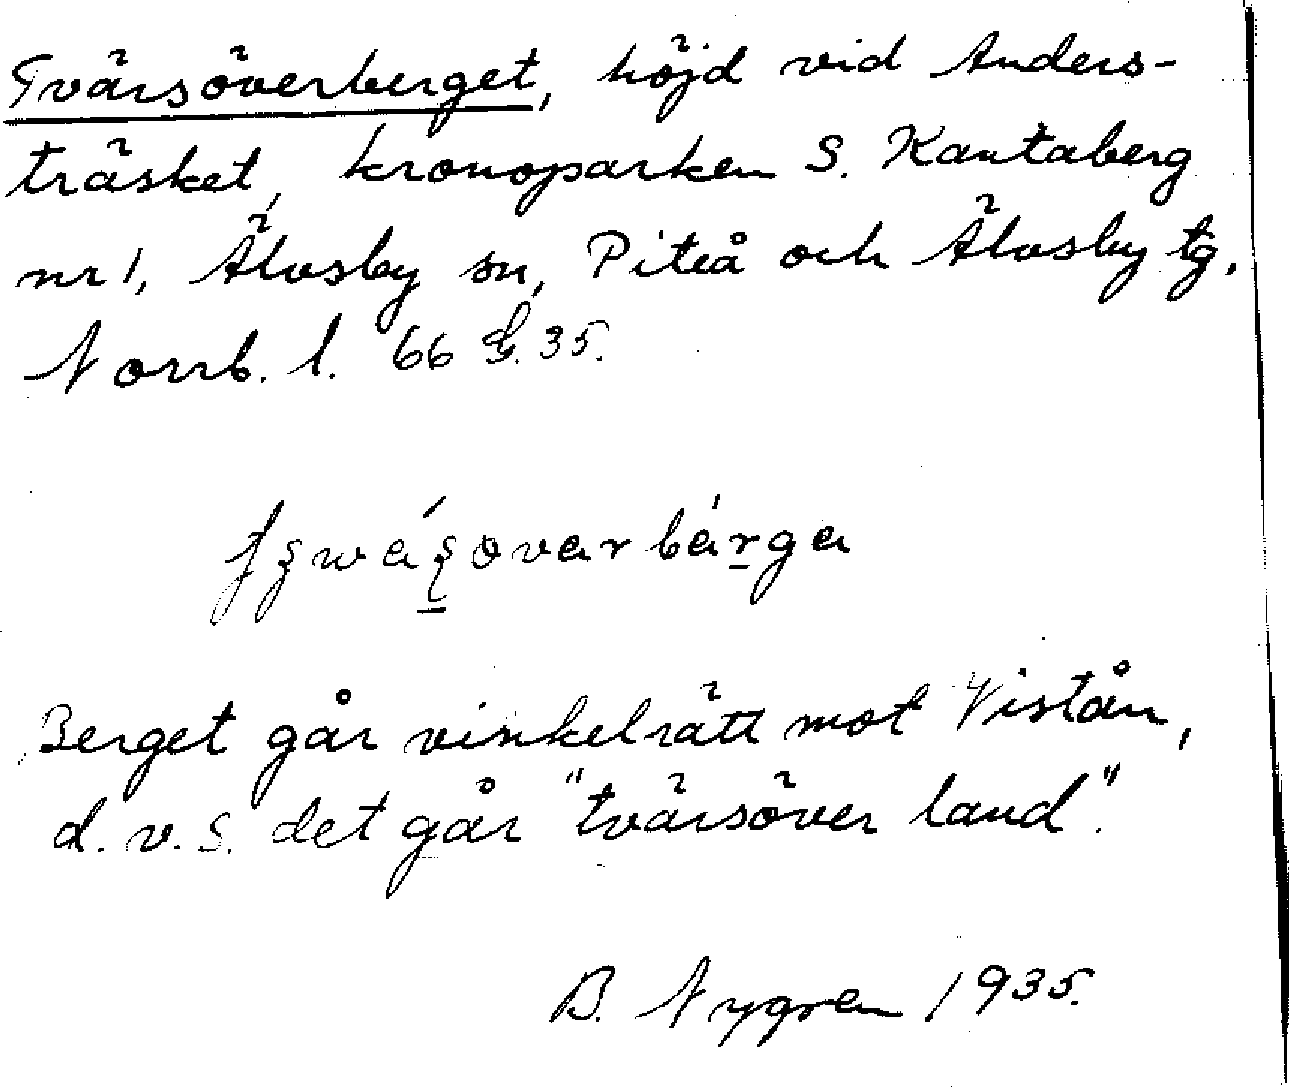 Tvärsöverberget, höjd vid Anders-
träsket, kronoparken S. Kantaberg
nr 1, Älvsby sn, Piteå och Älvsby tg,
Norrb. l. 66 G. 35.
Berget går vinkelrätt mot Vistån,
d. v. s. det går "tvärsöver land".
B. Nygren 1935.